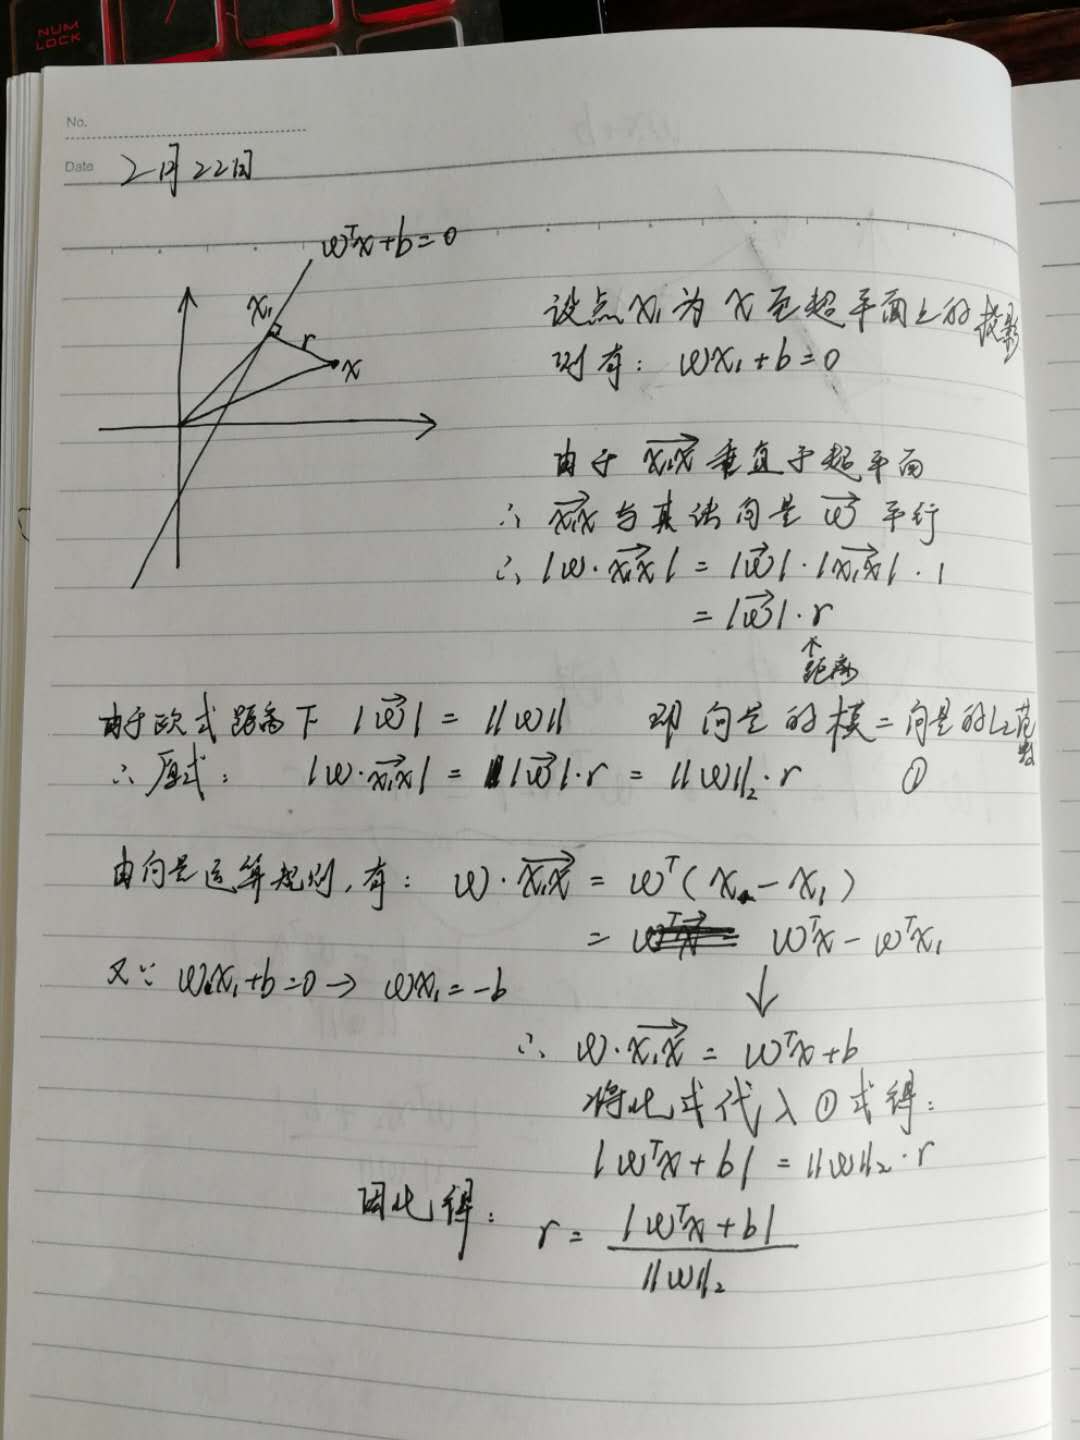 NUM
LOCK
No.
Date 2月22日
wᵀx+b=0
x₁
r
x
设点x₁为x至超平面上的投影
则有: wx₁+b=0
由于 x₁x→ 垂直于超平面
∴ x₁x→ 与其法向量 w→ 平行
∴ |w·x₁x→| = |w→|·|x₁x→|·1
= |w→|·r
↑
距离
由于欧式距离下 |w→| = ||w|| 即向量的模=向量的L₂范数
∴ 原式: |w·x₁x→| = |w→|·r = ||w||₂·r ①
由向量运算规则,有: w·x₁x→ = wᵀ(x-x₁)
= wᵀx-wᵀx₁
又∵ w·x₁+b=0 → wx₁=-b
↓
∴ w·x₁x→ = wᵀx+b
将此式代入①式得:
|wᵀx+b| = ||w||₂·r
因此得: r = |wᵀx+b|
||w||₂